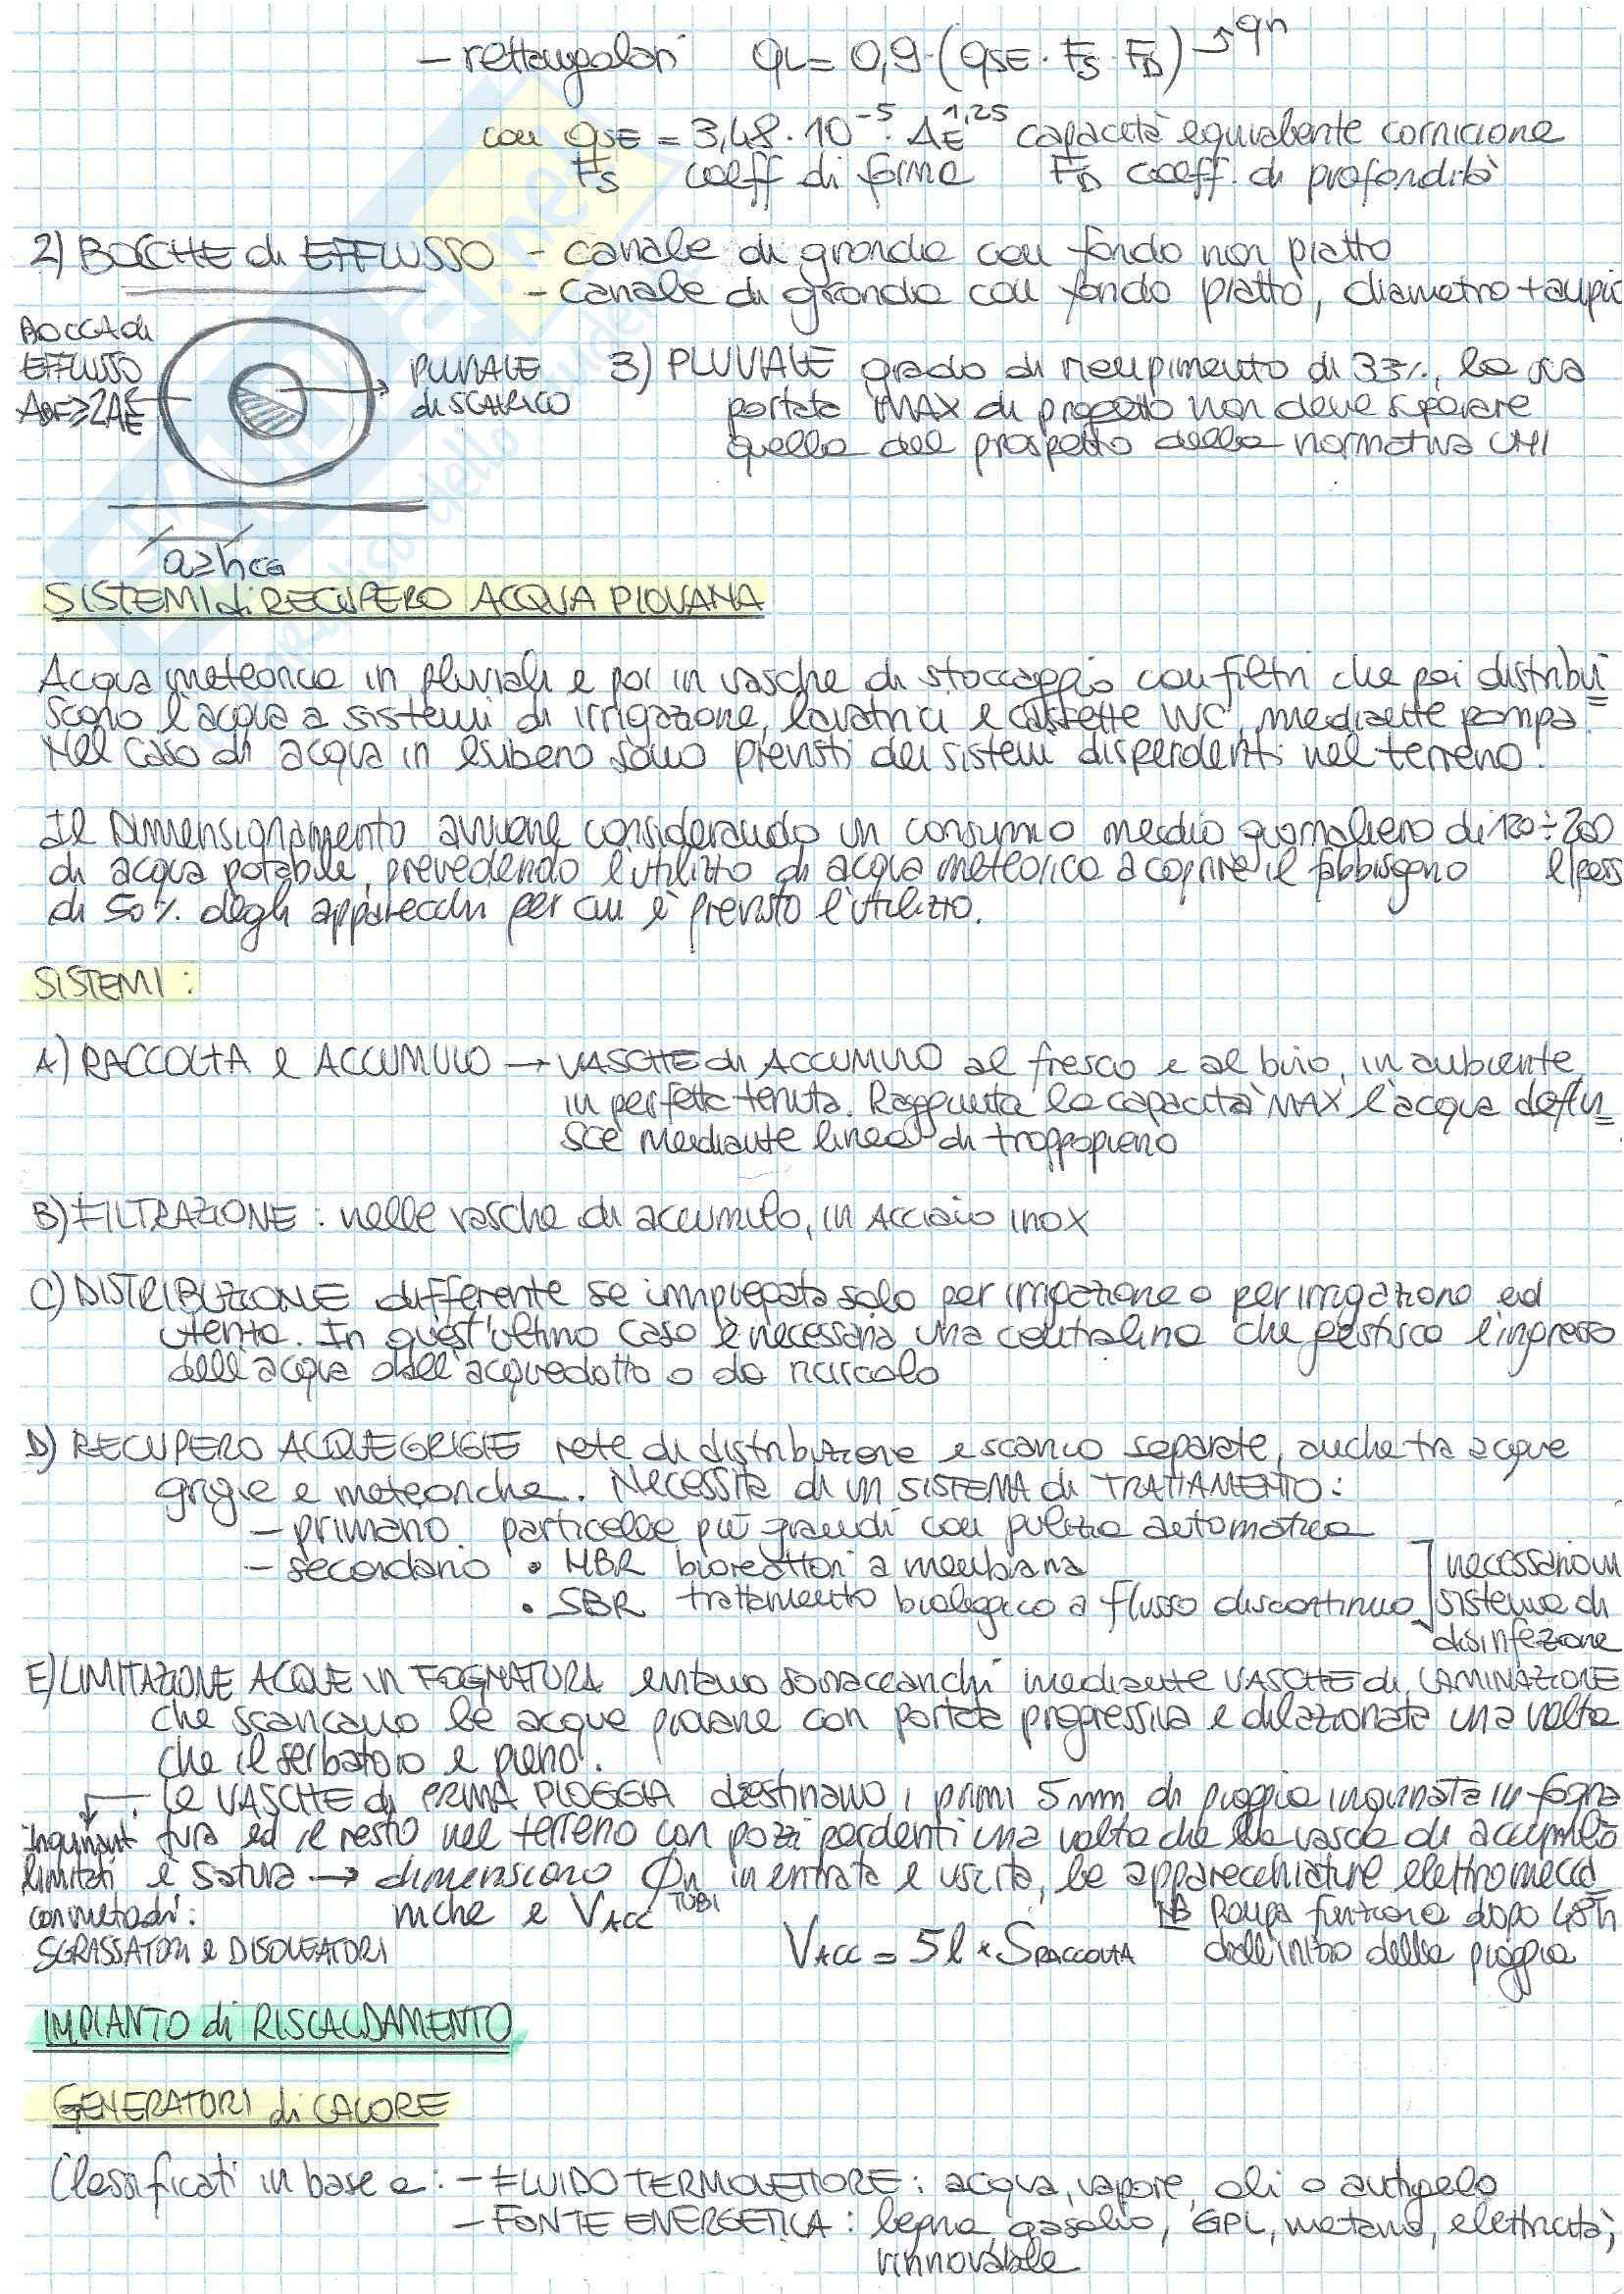 - rettangolari QL = 0,9·(QSE · FS · FD) → qn
con QSE = 3,48·10^-5 · AE^1,25 capacità equivalente cornicione
FS coeff di forma FD coeff. di profondità
2) BOCCHE di EFFLUSSO - canale di gronda con fondo non piatto
- canale di gronda con fondo piatto, diametro + ampio
BOCCA di
EFFLUSSO
ABE ≥ 2AE
PLUVIALE
di SCARICO
3) PLUVIALE grado di riempimento di 33%, la sua
portata MAX di progetto non deve superare
quella del prospetto della normativa UNI
a ≥ hCG
SISTEMI di RECUPERO ACQUA PIOVANA
Acqua meteorica in pluviali e poi in vasche di stoccaggio con filtri che poi distribui
scono l'acqua a sistemi di irrigazione, lavatrici e cassette WC, mediante pompa.
Nel caso di acqua in esubero sono previsti dei sistemi disperdenti nel terreno.
Il Dimensionamento avviene considerando un consumo medio giornaliero di 120÷200
di acqua potabile, prevedendo l'utilizzo di acqua meteorica a coprire il fabbisogno l/pers
di 50% degli apparecchi per cui è previsto l'utilizzo.
SISTEMI:
A) RACCOLTA e ACCUMULO → VASCHE di ACCUMULO al fresco e al buio, in ambiente
in perfetta tenuta. Raggiunta la capacità MAX l'acqua deflui
sce mediante linea di troppopieno
B) FILTRAZIONE: nelle vasche di accumulo, in Acciaio inox
C) DISTRIBUZIONE differente se impiegata solo per irrigazione o per irrigazione ed
utenza. In quest'ultimo caso è necessaria una centralina che gestisca l'ingresso
dell'acqua dall'acquedotto o da ricircolo
D) RECUPERO ACQUE GRIGIE rete di distribuzione e scarico separate, anche tra acque
grigie e meteoriche. Necessita di un SISTEMA di TRATTAMENTO:
- primario particelle più grandi con pulizia automatica
- secondario • MBR bioreattori a membrana
• SBR trattamento biologico a flusso discontinuo
necessario un
sistema di
disinfezione
E) LIMITAZIONE ACQUE IN FOGNATURA evitano sovraccarichi mediante VASCHE di LAMINAZIONE
che scaricano le acque piovane con portata progressiva e dilazionata una volta
che il serbatoio è pieno.
Le VASCHE di PRIMA PIOGGIA destinano i primi 5 mm di pioggia inquinata in fogna
tura ed il resto nel terreno con pozzi perdenti una volta che la vasca di accumulo
è satura → dimensiono Øn TUBI in entrata e uscita, le apparecchiature elettromecca
niche e VACC
inquinanti
limitati
con metodi:
SGRASSATORI e DISOLEATORI
VACC = 5l × SRACCOLTA
NB Pompa funziona dopo 48h
dall'inizio della pioggia
IMPIANTO di RISCALDAMENTO
GENERATORI di CALORE
Classificati in base a: - FLUIDO TERMOVETTORE: acqua, vapore, oli o antigelo
- FONTE ENERGETICA: legna, gasolio, GPL, metano, elettricità,
rinnovabile